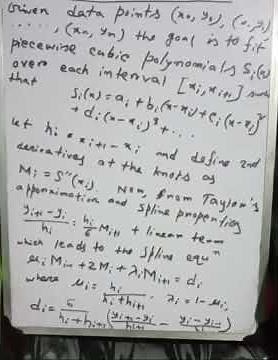 Given data points (x0, y0), (x1, y1)
..., (xn, yn) the goal is to fit
piecewise cubic polynomials Si(x)
over each interval [xi, xi+1] such
that
Si(x) = ai + bi(x-xi) + ci(x-xi)²
+ di(x-xi)³ + ...
let hi = xi+1 - xi and define 2nd
derivatives at the knots as
Mi = S''(xi). Now from Taylor's
approximation and spline properties
yi+1 - yi / hi = hi/6 Mi+1 + linear term
which leads to the spline equⁿ
μi Mi-1 + 2Mi + λi Mi+1 = di
where μi = hi / hi + hi+1, λi = 1 - μi,
di = 6 / hi + hi+1 (yi+1 - yi / hi+1 - yi - yi-1 / hi)